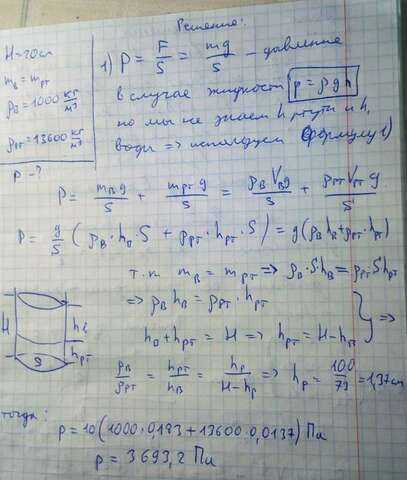 Решение:
H=20см
m_в = m_рт
ρ_в=1000 кг/м³
ρ_рт=13600 кг/м³
P - ?
1) P = F/S = mg/S - давление
в случае жидкости p = ρgh
но мы не знаем h ртути и h
воды => используем формулу 1)
P = m_в g/S + m_рт g/S = ρ_в·V_в g/S + ρ_рт V_рт g/S
P = g/S (ρ_в·h_в·S + ρ_рт·h_рт·S) = g(ρ_в h_в + ρ_рт·h_рт)
т.к m_в = m_рт => ρ_в·S·h_в = ρ_рт S h_рт
=> ρ_в h_в = ρ_рт·h_рт
h_в + h_рт = H => h_рт = H-h_в
=>
H
h_в
h_рт
S
ρ_в/ρ_рт = h_рт/h_в = h_р/H-h_р => h_р = 100/73 = 1,37см
тогда:
p = 10(1000·0,183+13600·0,0137) Па
p = 3693,2 Па